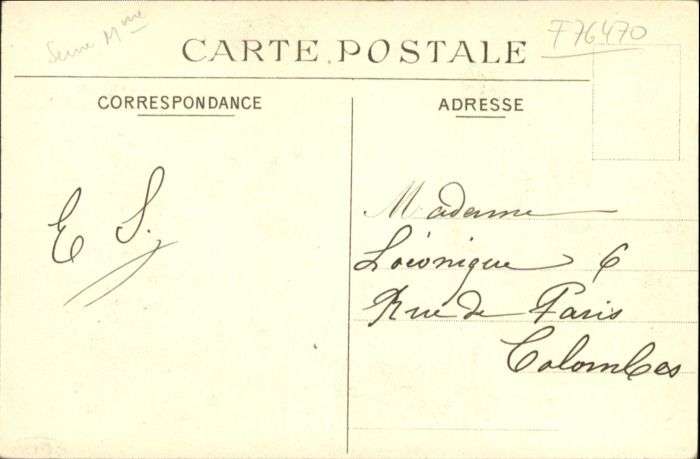 Seine Mme
F76470
CARTE POSTALE
CORRESPONDANCE
ADRESSE
E S.
Madame
Loëonique 6
Rue de Paris
Colombes